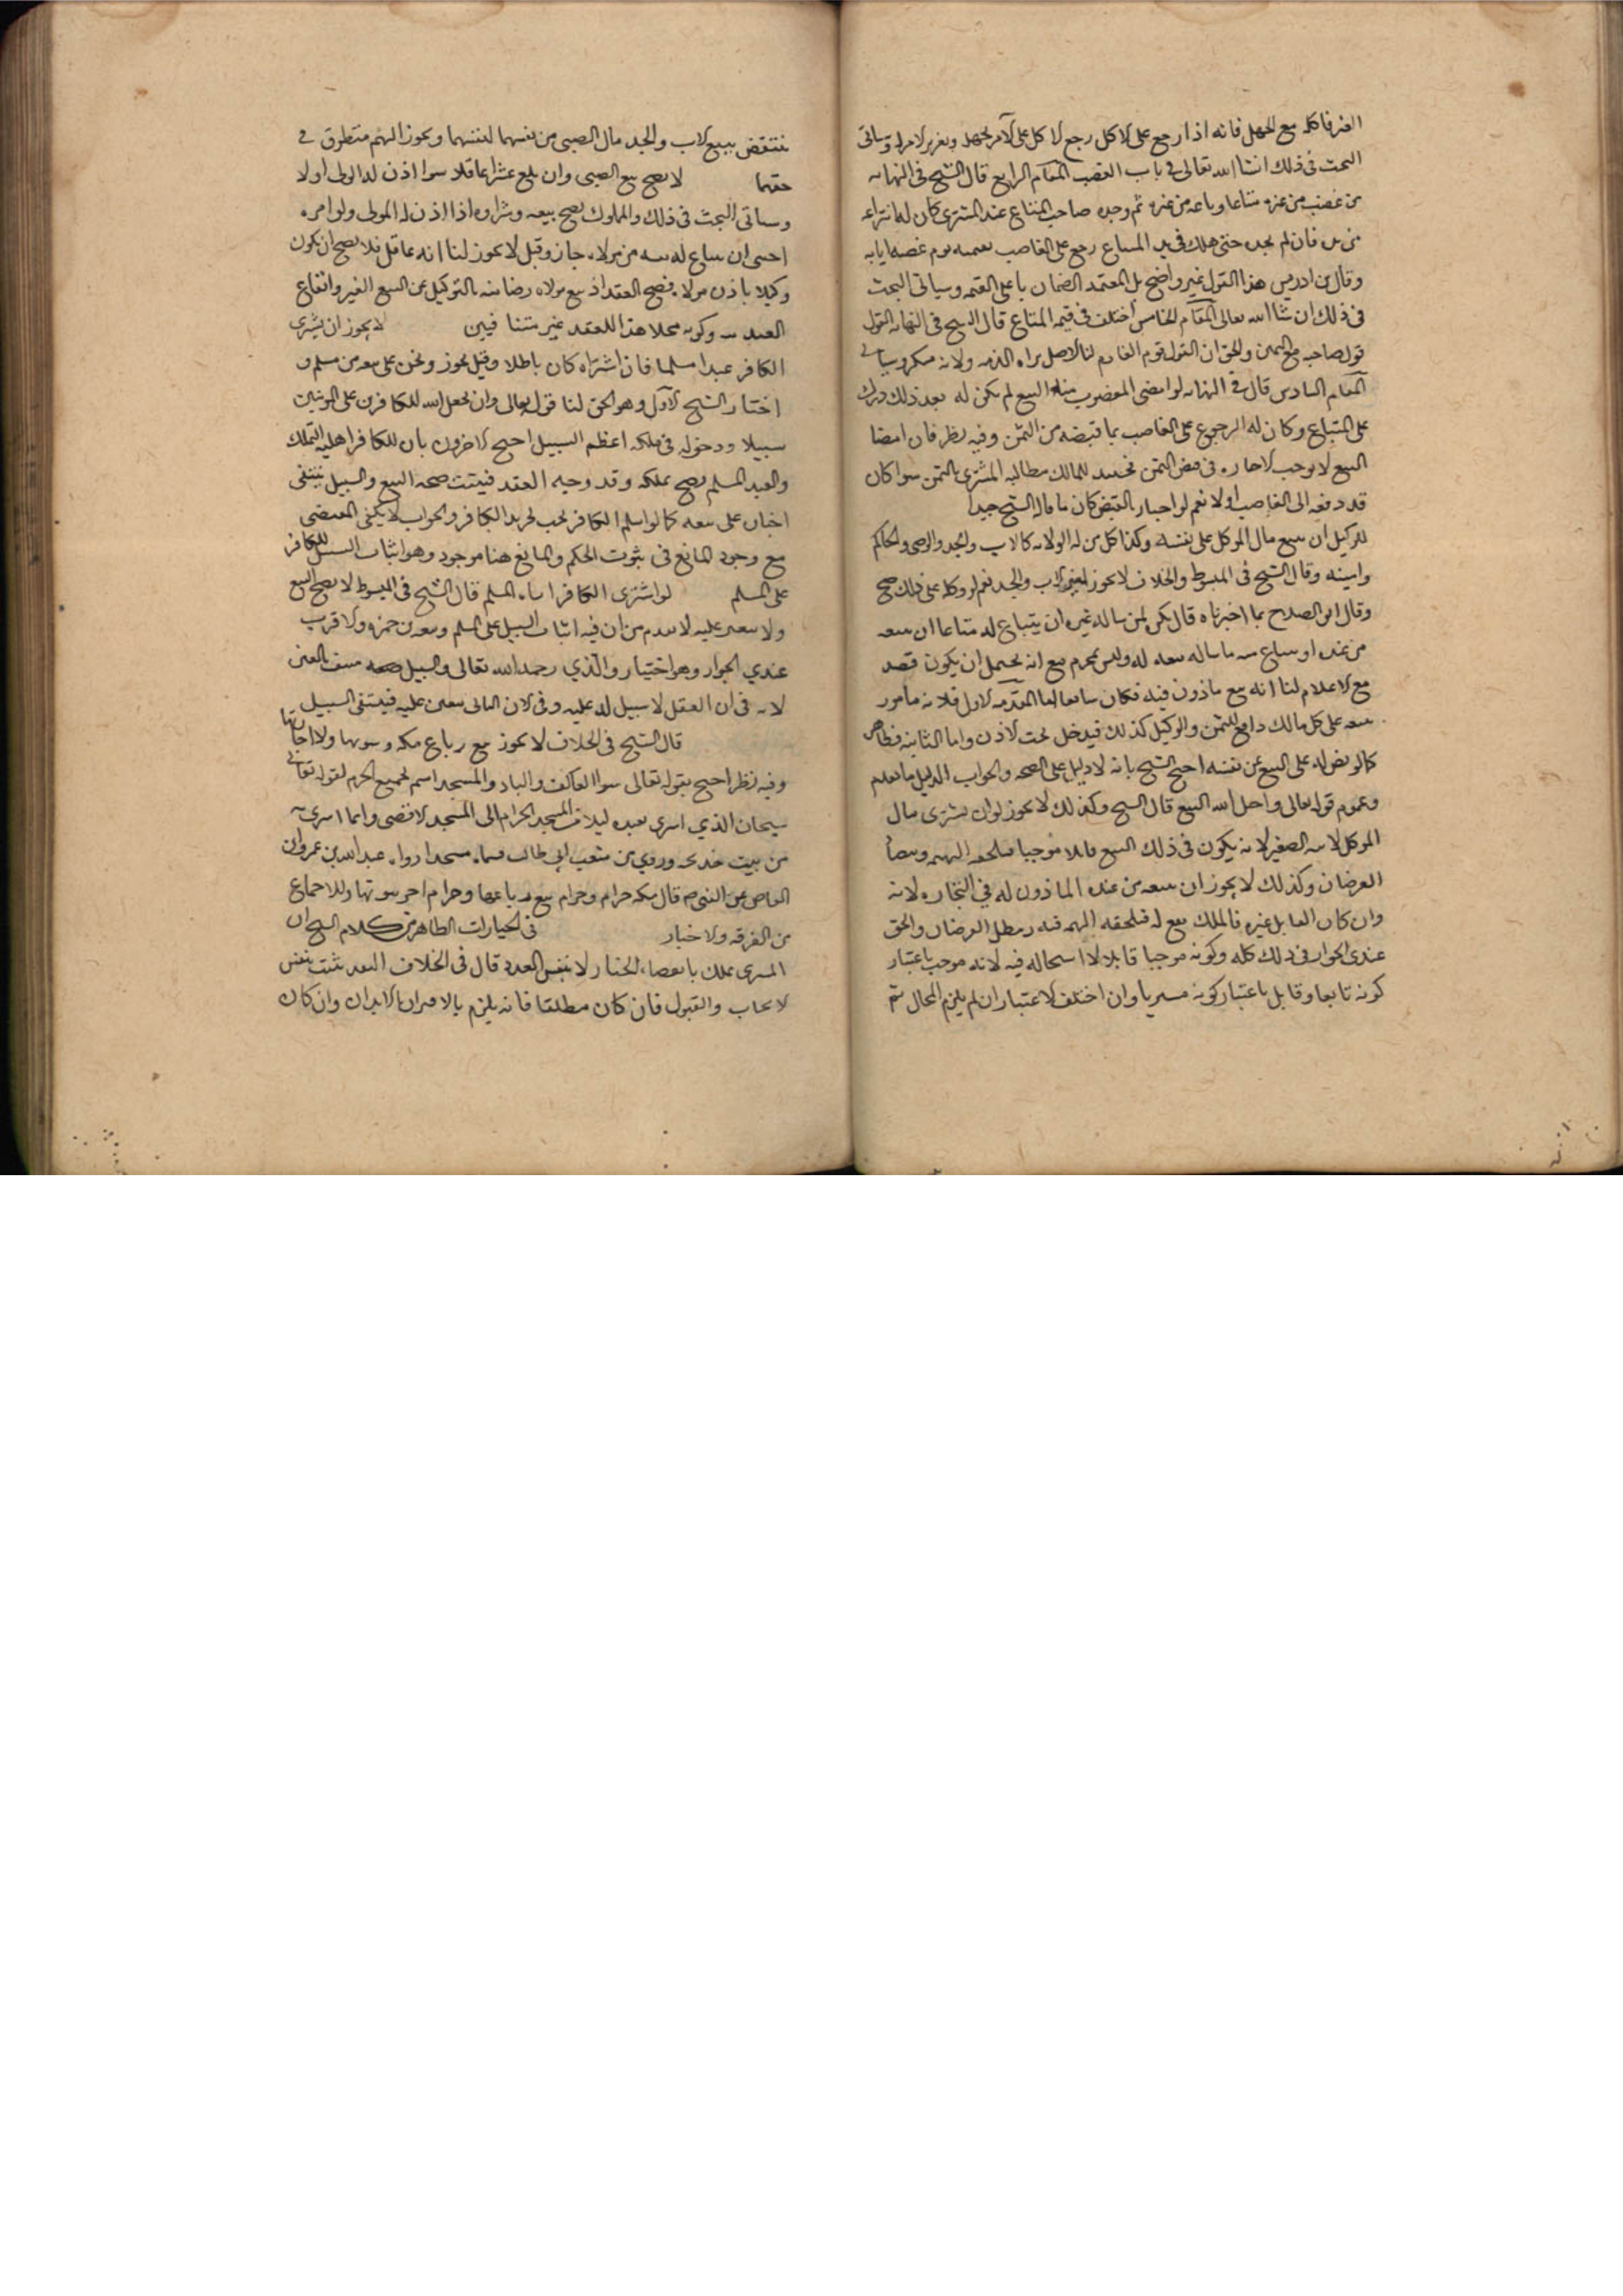 الغير فاكله مع الجهل فانه اذا رجع على الاكل رجع الاكل على الآمر لجهله وتغرير الآمر له وسياتى
البحث فى ذلك انشا الله تعالى فى باب الغصب المقام الرابع قال الشيخ فى النهايه
من غصب من غيره متاعا وباعه من غيره ثم وجده صاحب المتاع عند المشترى كان له انتزاعه
من يده فان لم يجده حتى هلك فى يد المبتاع رجع على الغاصب بقيمته يوم غصبه اياه
وقال بن ادريس هذا القول غير واضح بل المعتمد الضمان على القيمه وسياتى البحث
فى ذلك ان شا الله تعالى المقام الخامس اختلف فى قيمه المتاع قال الشيخ فى النهايه القول
قول صاحبه مع اليمين والحق ان القول قول الغارم لنا الاصل براه الذمه ولانه منكر وسياتى
المقام السادس قال فى النهايه لو امضى المغصوب منه البيع لم يكن له بعد ذلك درك
على المبتاع وكان له الرجوع على الغاصب بما قبضه من الثمن وفيه نظر فان امضا
البيع لا يوجب الاجازه فى قبض الثمن فحينئذ للمالك مطالبه المشترى بالثمن سوا كان
قد دفعه الى الغاصب او لا نعم لو اجاز القبض كان ما قاله الشيخ جيدا
للوكيل ان يبيع مال الموكل على نفسه وكذا كل من له الولايه كالاب والجد والوصى والحاكم
وامينه وقال الشيخ فى المبسوط والخلاف لا يجوز لغير الاب والجد نعم لو وكله على ذلك صح
وقال ابو الصلاح بما اخترناه قال يكره لمن ساله غيره ان يبتاع له متاعا ان يبيعه
من عنده او يبتاع منه ما ساله بيعه له وليس بمحرم مع انه يحتمل ان يكون قصد
مع الاعلام لنا انه بيع ماذون فيه فكان سائغا اما المقدمه الاولى فلانه مأمور
ببيعه على كل مالك دافع للثمن والوكيل كذلك فيدخل تحت الاذن واما الثانيه فظاهر
كما لو نص له على البيع من نفسه احتج الشيخ بانه لا دليل على الصحه والجواب الدليل ما تقدم
وعموم قوله تعالى واحل الله البيع قال الشيخ وكذلك لا يجوز له ان يشترى مال
الموكل لابنه الصغير لانه يكون فى ذلك البيع قابلا موجبا فيلحقه التهمه ويتضاد
الغرضان وكذلك لا يجوز ان يبيعه من عبده الماذون له فى التجاره لانه
وان كان القابل غيره فالملك يقع له فيلحقه التهمه فيه ويبطل الغرضان والحق
عندى الجواز فى ذلك كله وكونه موجبا قابلا لا استحاله فيه لانه موجب باعتبار
كونه بائعا وقابل باعتبار كونه مشتريا وان اختلف الاعتباران لم يلزم المحال ثم
ينتقض ببيع الاب والجد مال الصبى من نفسهما لنفسهما وتجويز التهم متطرق فى
حقهما لا يصح بيع الصبى وان بلغ عشرا عاقلا سوا اذن له الولى او لا
وسياتى البحث فى ذلك والمملوك يصح بيعه وشراوه اذا اذن له المولى ولو امره
اجنبى ان يبتاع له نفسه من مولاه جاز وقيل لا يجوز لنا انه عاقل فلا يصح ان يكون
وكيلا باذن مولاه فصح العقد اذ بيع مولاه رضا منه بالتوكيل عن البيع الغير وايقاع
العبد وكونه محلا هذا للعقد غير متنافيين لا يجوز ان يشترى
الكافر عبدا مسلما فان اشتراه كان باطلا وقيل يجوز ويجبر على بيعه من مسلم و
اختار الشيخ الاول وهو الحق لنا قوله تعالى ولن يجعل الله للكافرين على المومنين
سبيلا ودخوله فى ملكه اعظم السبيل احتج الاخرون بان للكافر اهليه التملك
والعبد المسلم يصح تملكه وقد وجد العقد فيثبت صحه البيع والسبيل ينتفى
اجباره على بيعه كما لو اسلم الكافر تحت يد الكافر والجواب لا يكفى المقتضى
مع وجود المانع فى ثبوت الحكم والمانع هنا موجود وهو اثبات السبيل للكافر
على المسلم لو اشترى الكافر اباه المسلم قال الشيخ فى المبسوط لا يصح البيع
ولا يعتق عليه لما تقدم من ان فيه اثبات السبيل على المسلم وتبعه بن حمزه والاقرب
عندي الجواز وهو اختيار والدي رحمه الله تعالى والسبيل منتف بالعتق
لانه فى آن العقد لا سبيل له عليه وفى الآن الثانى يعتق عليه فينتفى السبيل
قال الشيخ فى الخلاف لا يجوز بيع رباع مكه وبيوتها ولا اجارتها
وفيه نظر احتج بقوله تعالى سوا العاكف فيه والباد والمسجد اسم لجميع الحرم لقوله تعالى
سبحان الذي اسرى بعبده ليلا من المسجد الحرام الى المسجد الاقصى وانما اسرى به
من بيت خديجه وروي من شعب ابى طالب فسماه مسجدا وروى عبد الله بن عمرو بن
العاص عن النبى ص قال مكه حرام وحرام بيع رباعها وحرام اجر بيوتها وللاجماع
من الفرقه والاخبار فى الخيارات الظاهر من كلام الشيخ ان
المشترى يملك بانقضاء الخيار لا بنفس العقد قال فى الخلاف العقد يثبت بنفس
الايجاب والقبول فان كان مطلقا فانه يلزم بالافتراق بالابدان وان كان